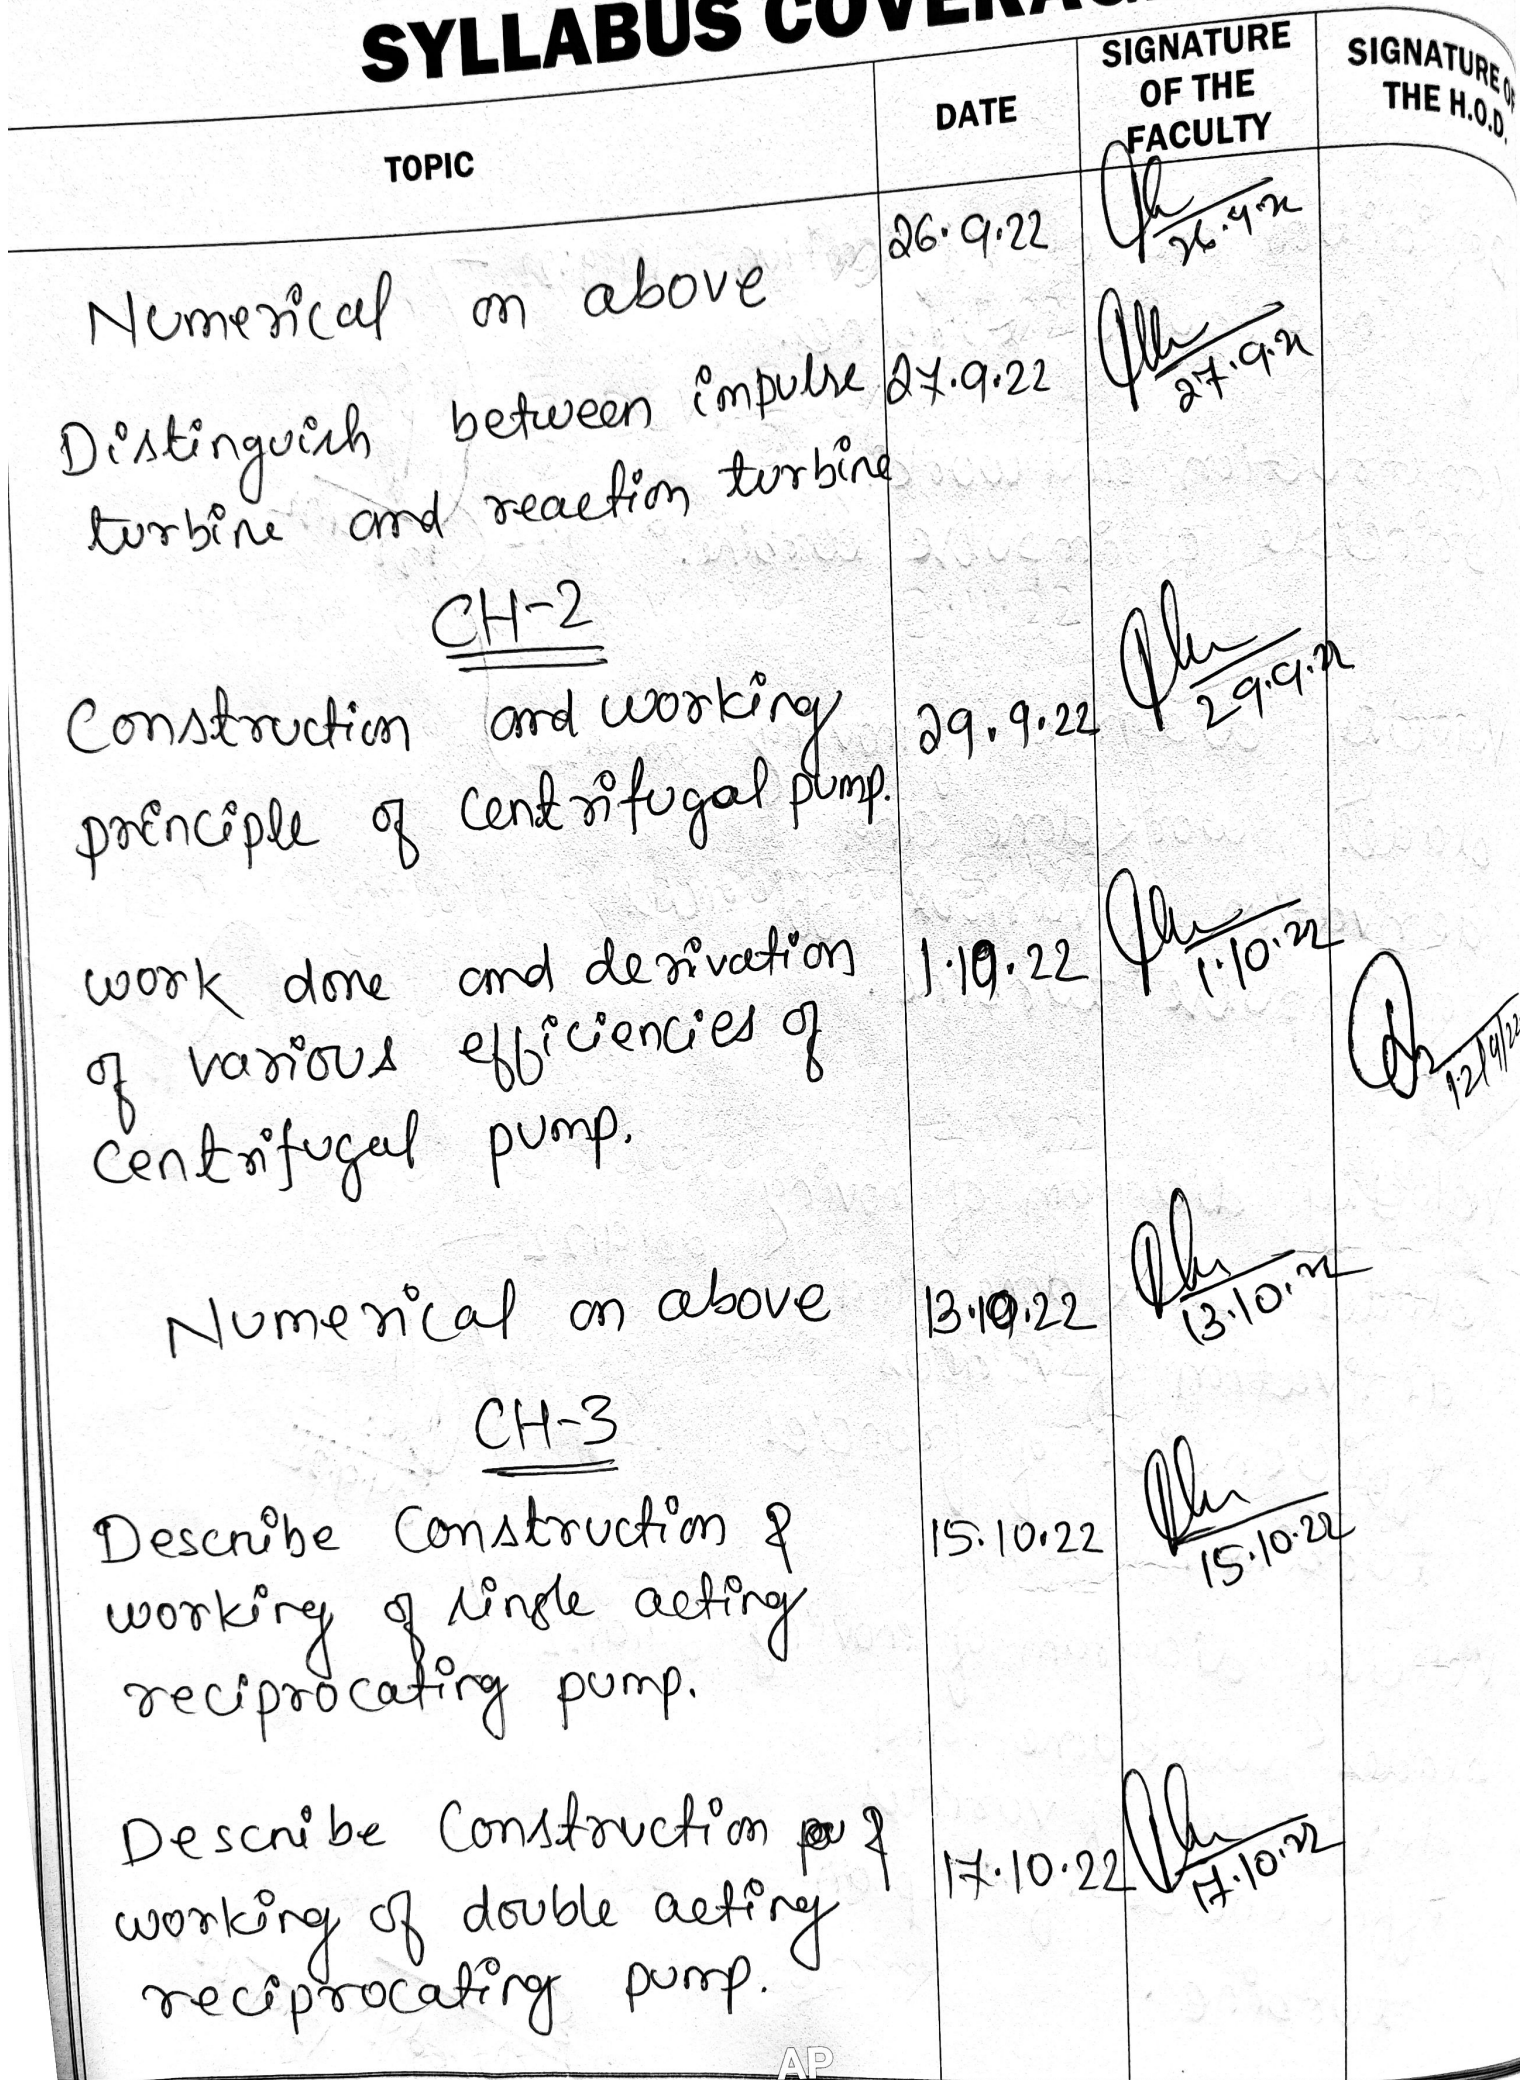 SYLLABUS COVERAG
TOPIC
DATE
SIGNATURE
OF THE
FACULTY
SIGNATURE OF
THE H.O.D.
Numerical on above
26.9.22
Distinguish between impulse
turbine and reaction turbine
27.9.22
27.9.22
CH-2
Construction and working
principle of Centrifugal pump.
29.9.22
29.9.22
work done and derivation
of various efficiencies of
Centrifugal pump.
1.10.22
1.10.22
12/9/22
Numerical on above
13.10.22
13.10.22
CH-3
Describe Construction &
working of single acting
reciprocating pump.
15.10.22
15.10.22
Describe Construction &
working of double acting
reciprocating pump.
17.10.22
17.10.22
AP